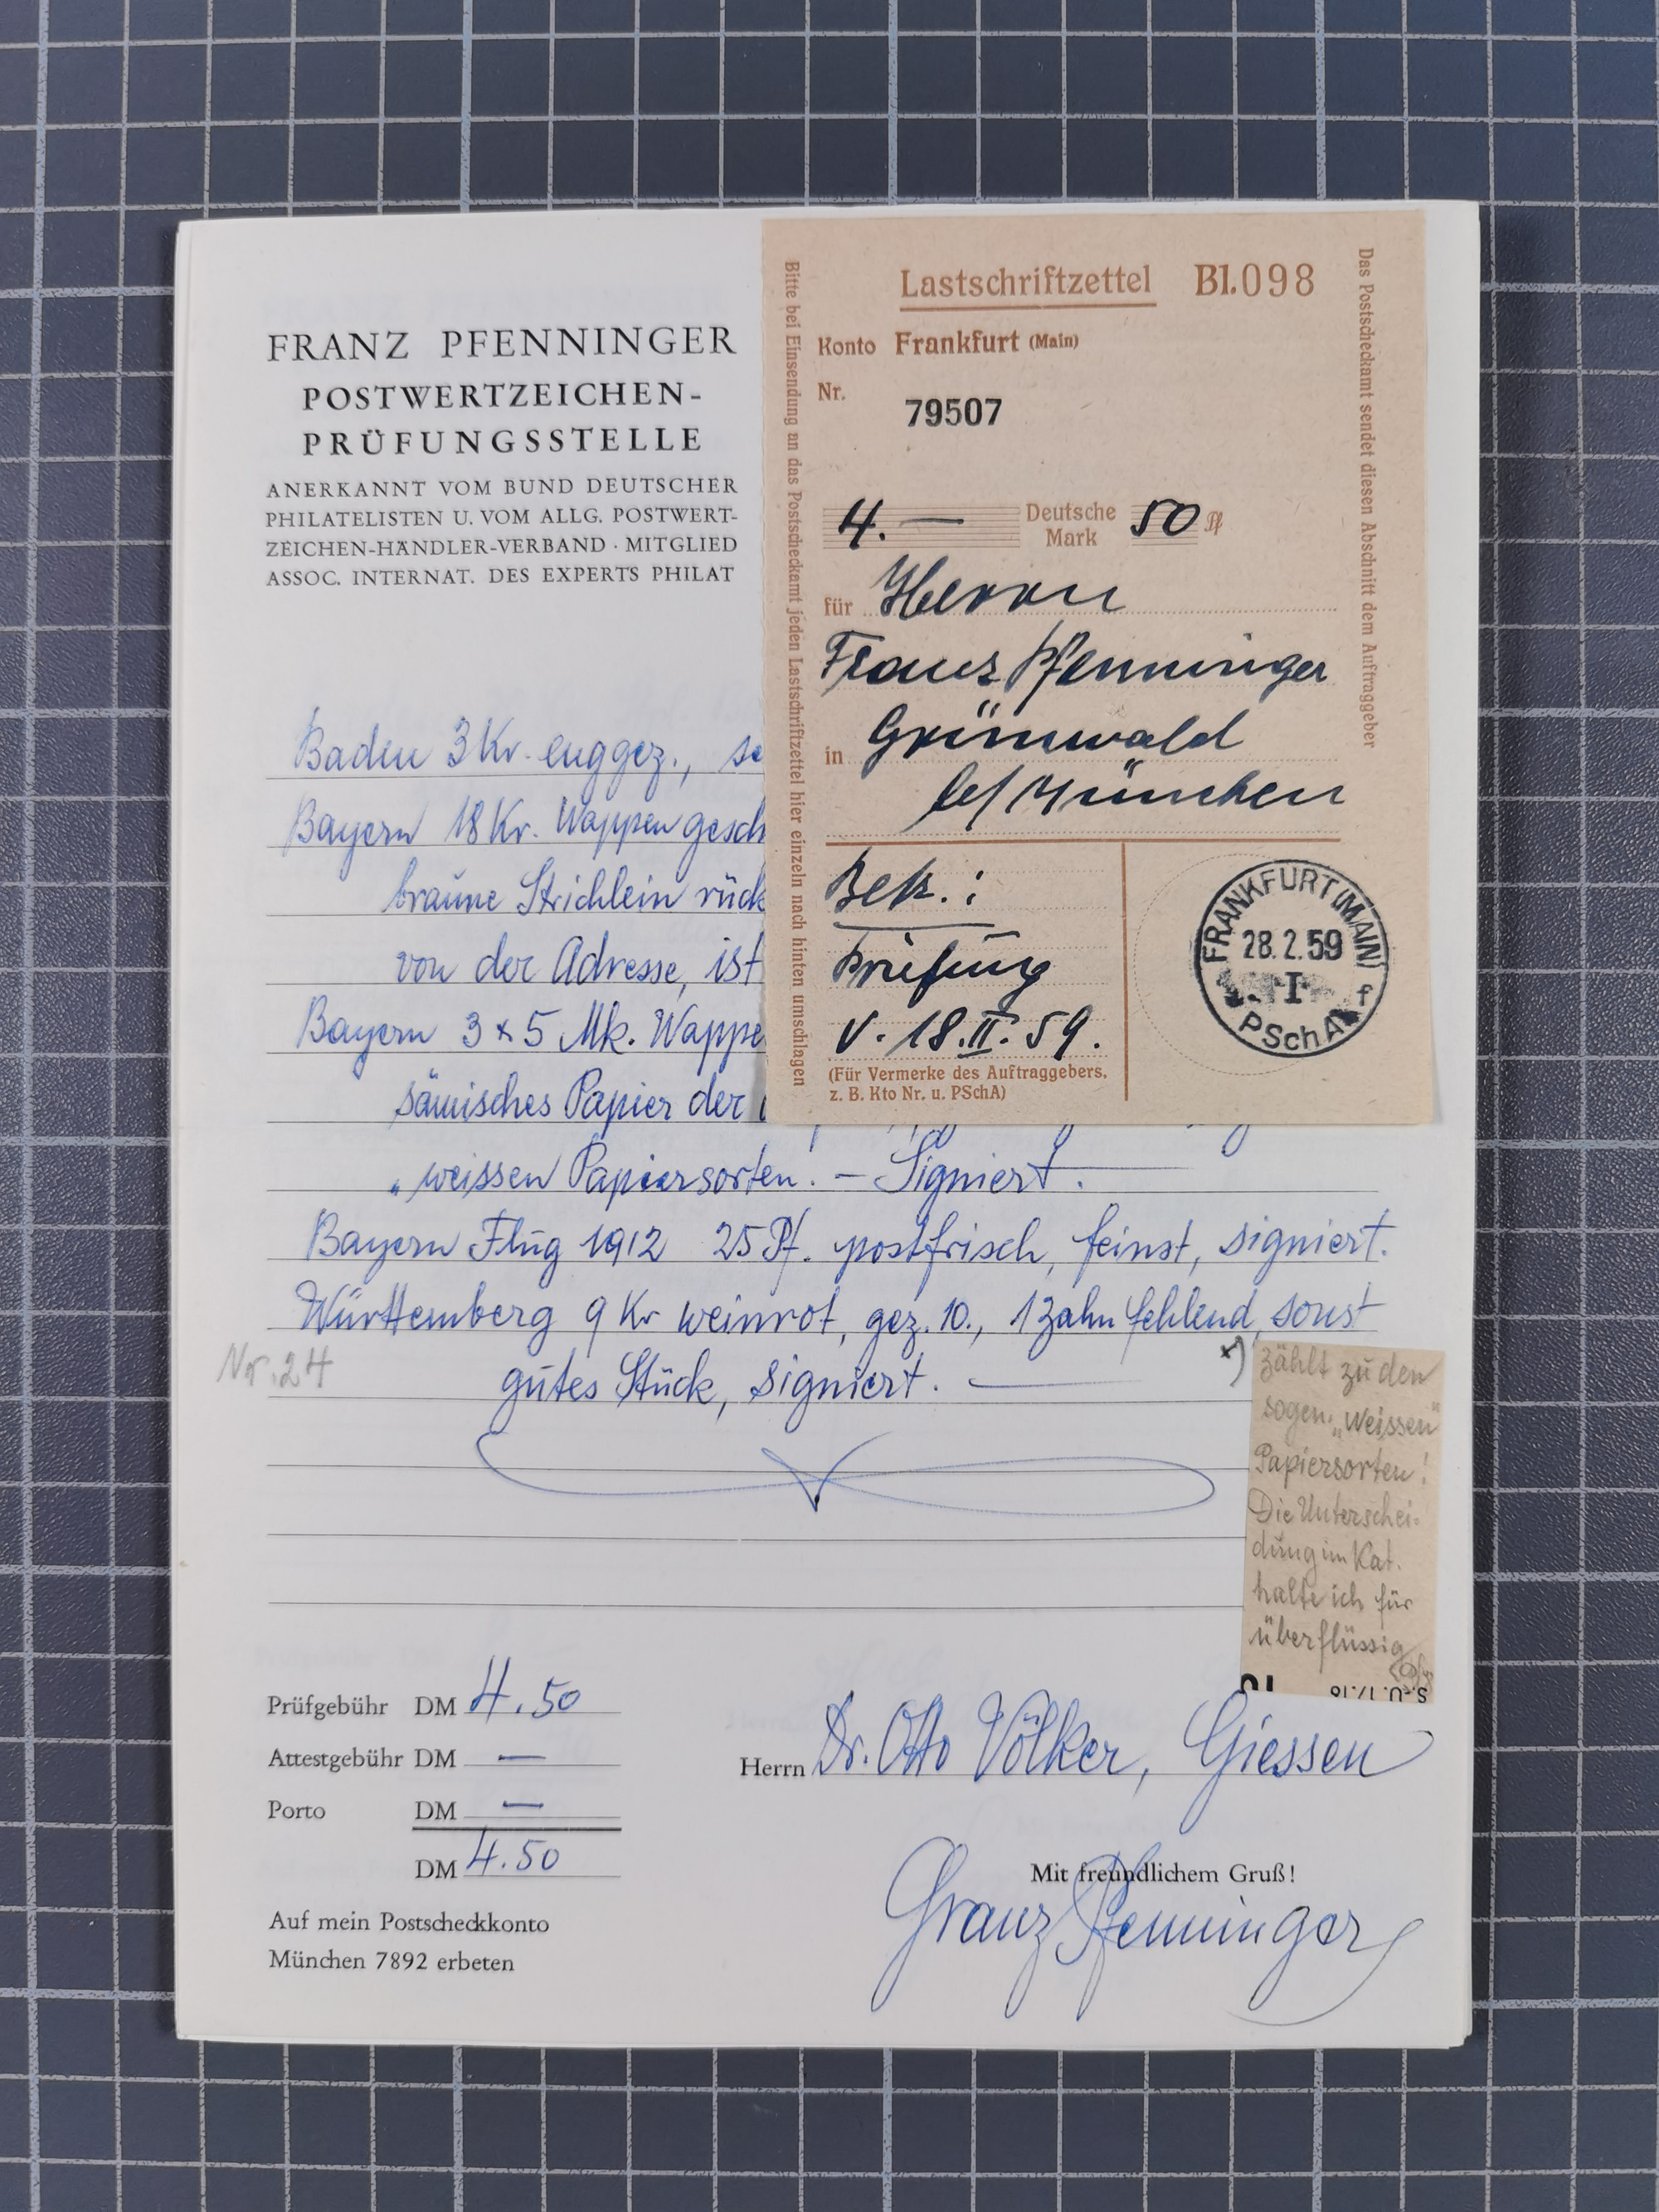 FRANZ PFENNINGER
POSTWERTZEICHEN-
PRÜFUNGSSTELLE
ANERKANNT VOM BUND DEUTSCHER
PHILATELISTEN U. VOM ALLG. POSTWERT-
ZEICHEN-HÄNDLER-VERBAND · MITGLIED
ASSOC. INTERNAT. DES EXPERTS PHILAT
Lastschriftzettel Bl.098
Konto Frankfurt (Main)
Nr.
79507
4.— Deutsche Mark 50 Pf
für Herrn
Franz Pfenninger
in Grünwald
bei München
Betr.:
Prüfung
v. 18.II.59.
(Für Vermerke des Auftraggebers,
z. B. Kto Nr. u. PSchA)
FRANKFURT (MAIN)
28.2.59
I f
PSchA
Bitte bei Einsendung an das Postscheckamt jeden Lastschriftzettel hier einzeln nach hinten umschlagen
Das Postscheckamt sendet diesen Abschnitt dem Auftraggeber
Baden 3 Kr. enggez., se
Bayern 18 Kr. Wappen gesch
braune Strichlein rück
von der Adresse, ist
Bayern 3 x 5 Mk. Wappe
sämisches Papier der
"weissen Papiersorten! — Signiert.
Bayern Flug 1912 25 Pf. postfrisch, feinst, signiert.
Württemberg 9 Kr weinrot, gez. 10., 1 Zahn fehlend, sonst
Nr. 24
gutes Stück, signiert. —
x) zählt zu den
sogen. „Weissen"
Papiersorten!
Die Unterschei-
dung im Kat.
halte ich für
überflüssig
Prüfgebühr DM 4.50
Attestgebühr DM —
Porto DM —
DM 4.50
Auf mein Postscheckkonto
München 7892 erbeten
Herrn Dr. Otto Völker, Giessen
Mit freundlichem Gruß!
Franz Pfenninger